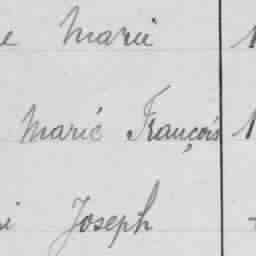 e Marie
Marie François 1
i Joseph